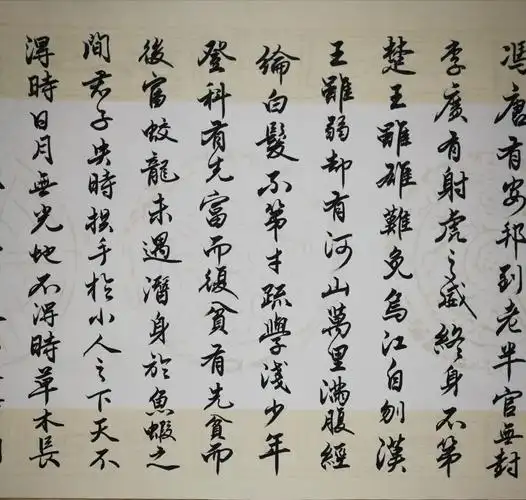 馮唐有安邦到老半官無封
李廣有射虎之威終身不第
楚王雖雄難免烏江自刎漢
王雖弱却有河山萬里滿腹經
綸白髮不第才疏學淺少年
登科有先富而後貧有先貧而
後富蛟龍未遇潛身於魚蝦之
間君子失時拱手於小人之下天不
得時日月無光地不得時草木長